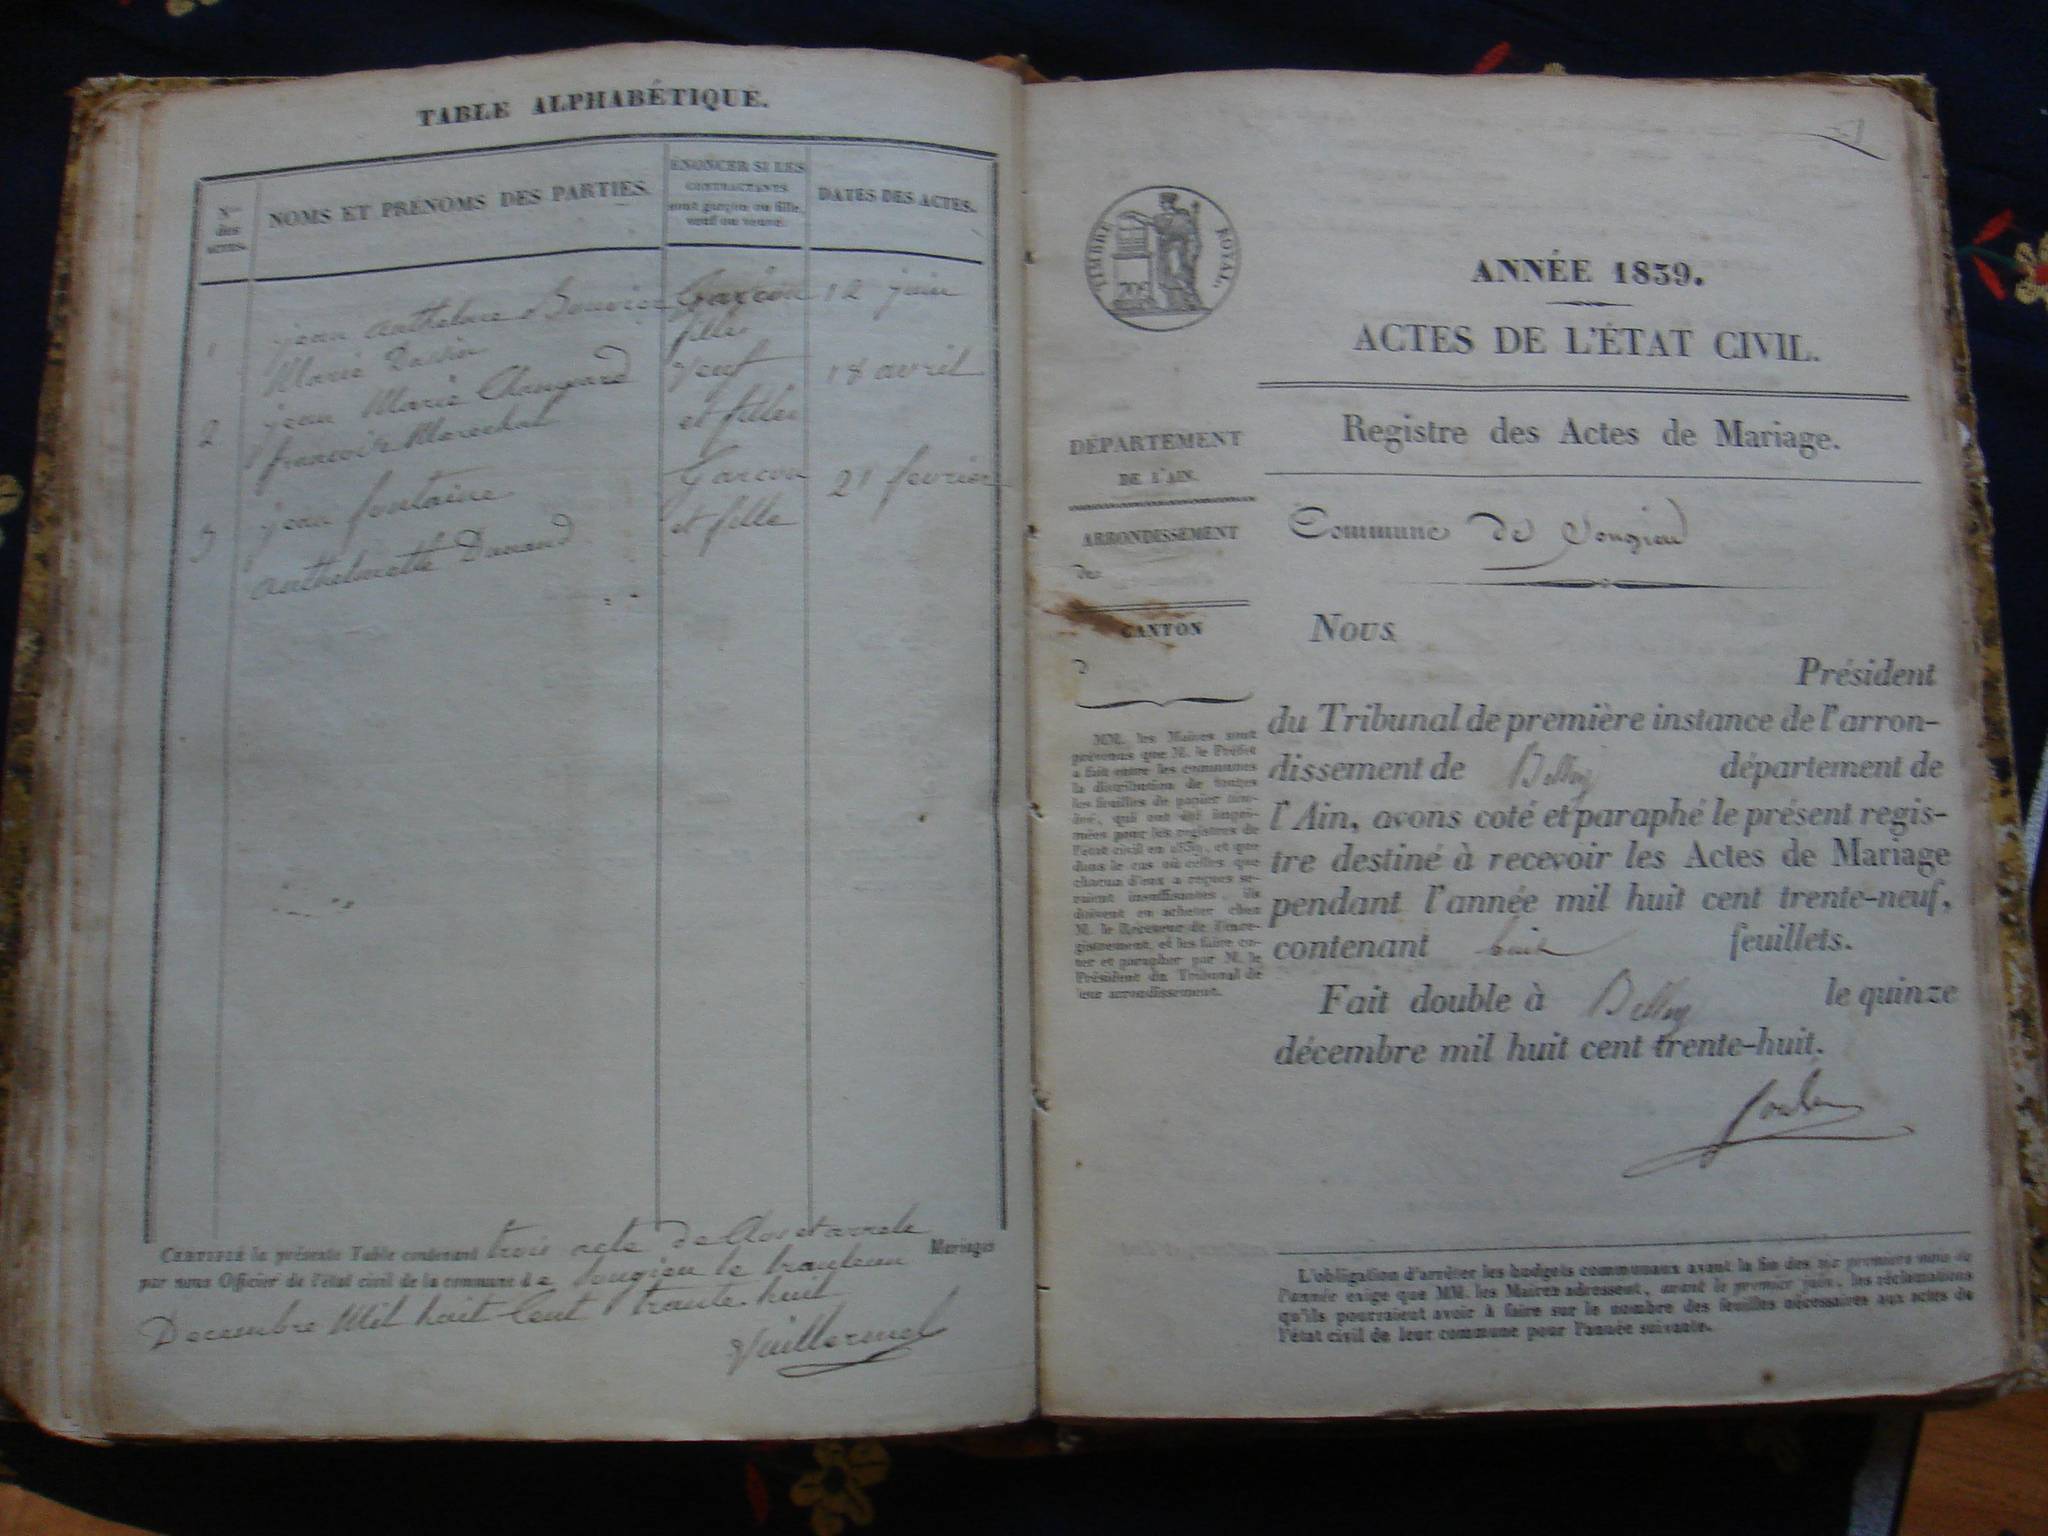 TABLE ALPHABÉTIQUE.
Nos
des
ACTES.
NOMS ET PRÉNOMS DES PARTIES.
ÉNONCER SI LES
CONTRACTANTS
sont garçon ou fille,
veuf ou veuve.
DATES DES ACTES.
1
jean anthelme Bouvier
garçon
12 juin
Marie
fille
2
jean Marie
veuf
18 avril
françoise Marechal
et fille
3
jean fontaine
Garcon
21 fevrier
anthelmette Dunand
et fille
CERTIFIÉ la présente Table contenant trois acte de Mariages
par nous Officier de l'état civil de la commune de Songieu le
Decembre Mil huit Cent trante huit
Vuillermet
TIMBRE ROYAL.
ANNÉE 1839.
ACTES DE L'ÉTAT CIVIL.
Registre des Actes de Mariage.
Commune de Songieu
DÉPARTEMENT
DE L'AIN.
ARRONDISSEMENT
de
CANTON
d
MM. les Maires sont
prévenus que M. le Préfet
a fait entre les communes
la distribution de toutes
les feuilles de papier tim-
bré, qui ont été impri-
mées pour les registres de
l'état civil en 1839, et que
dans le cas où celles que
chacun d'eux a reçues se-
raient insuffisantes, ils
doivent en acheter chez
M. le Receveur de l'enre-
gistrement, et les faire co-
ter et parapher par M. le
Président du Tribunal de
leur arrondissement.
NOUS
Président
du Tribunal de première instance de l'arron-
dissement de Belley département de
l'Ain, avons coté et paraphé le présent regis-
tre destiné à recevoir les Actes de Mariage
pendant l'année mil huit cent trente-neuf,
contenant huit feuillets.
Fait double à Belley le quinze
décembre mil huit cent trente-huit.
L'obligation d'arrêter les budgets communaux avant la fin des six premiers mois de
l'année exige que MM. les Maires adressent, avant le premier juin, les réclamations
qu'ils pourraient avoir à faire sur le nombre des feuilles nécessaires aux actes de
l'état civil de leur commune pour l'année suivante.